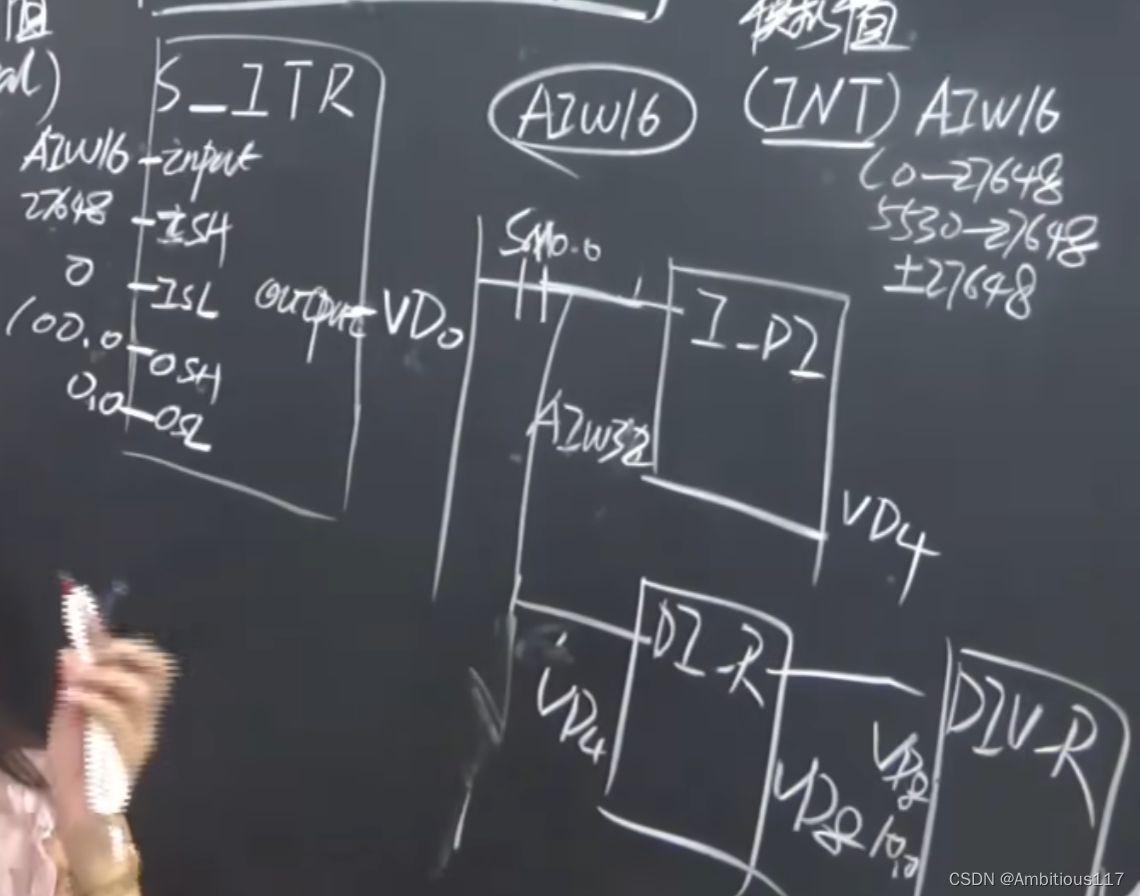 值
al)
S_ITR
AIW16 input
27648 ISH
0 ISL
100.0 OSH
0.0 OSL
output VD0
AIW16
模拟值
(INT) AIW16
(0-27648
5530-27648
±27648
SM0.0
I_DI
AIW32
VD4
DI_R
VD4
VD8
DIV_R
VD8
10.0
CSDN @Ambitious117